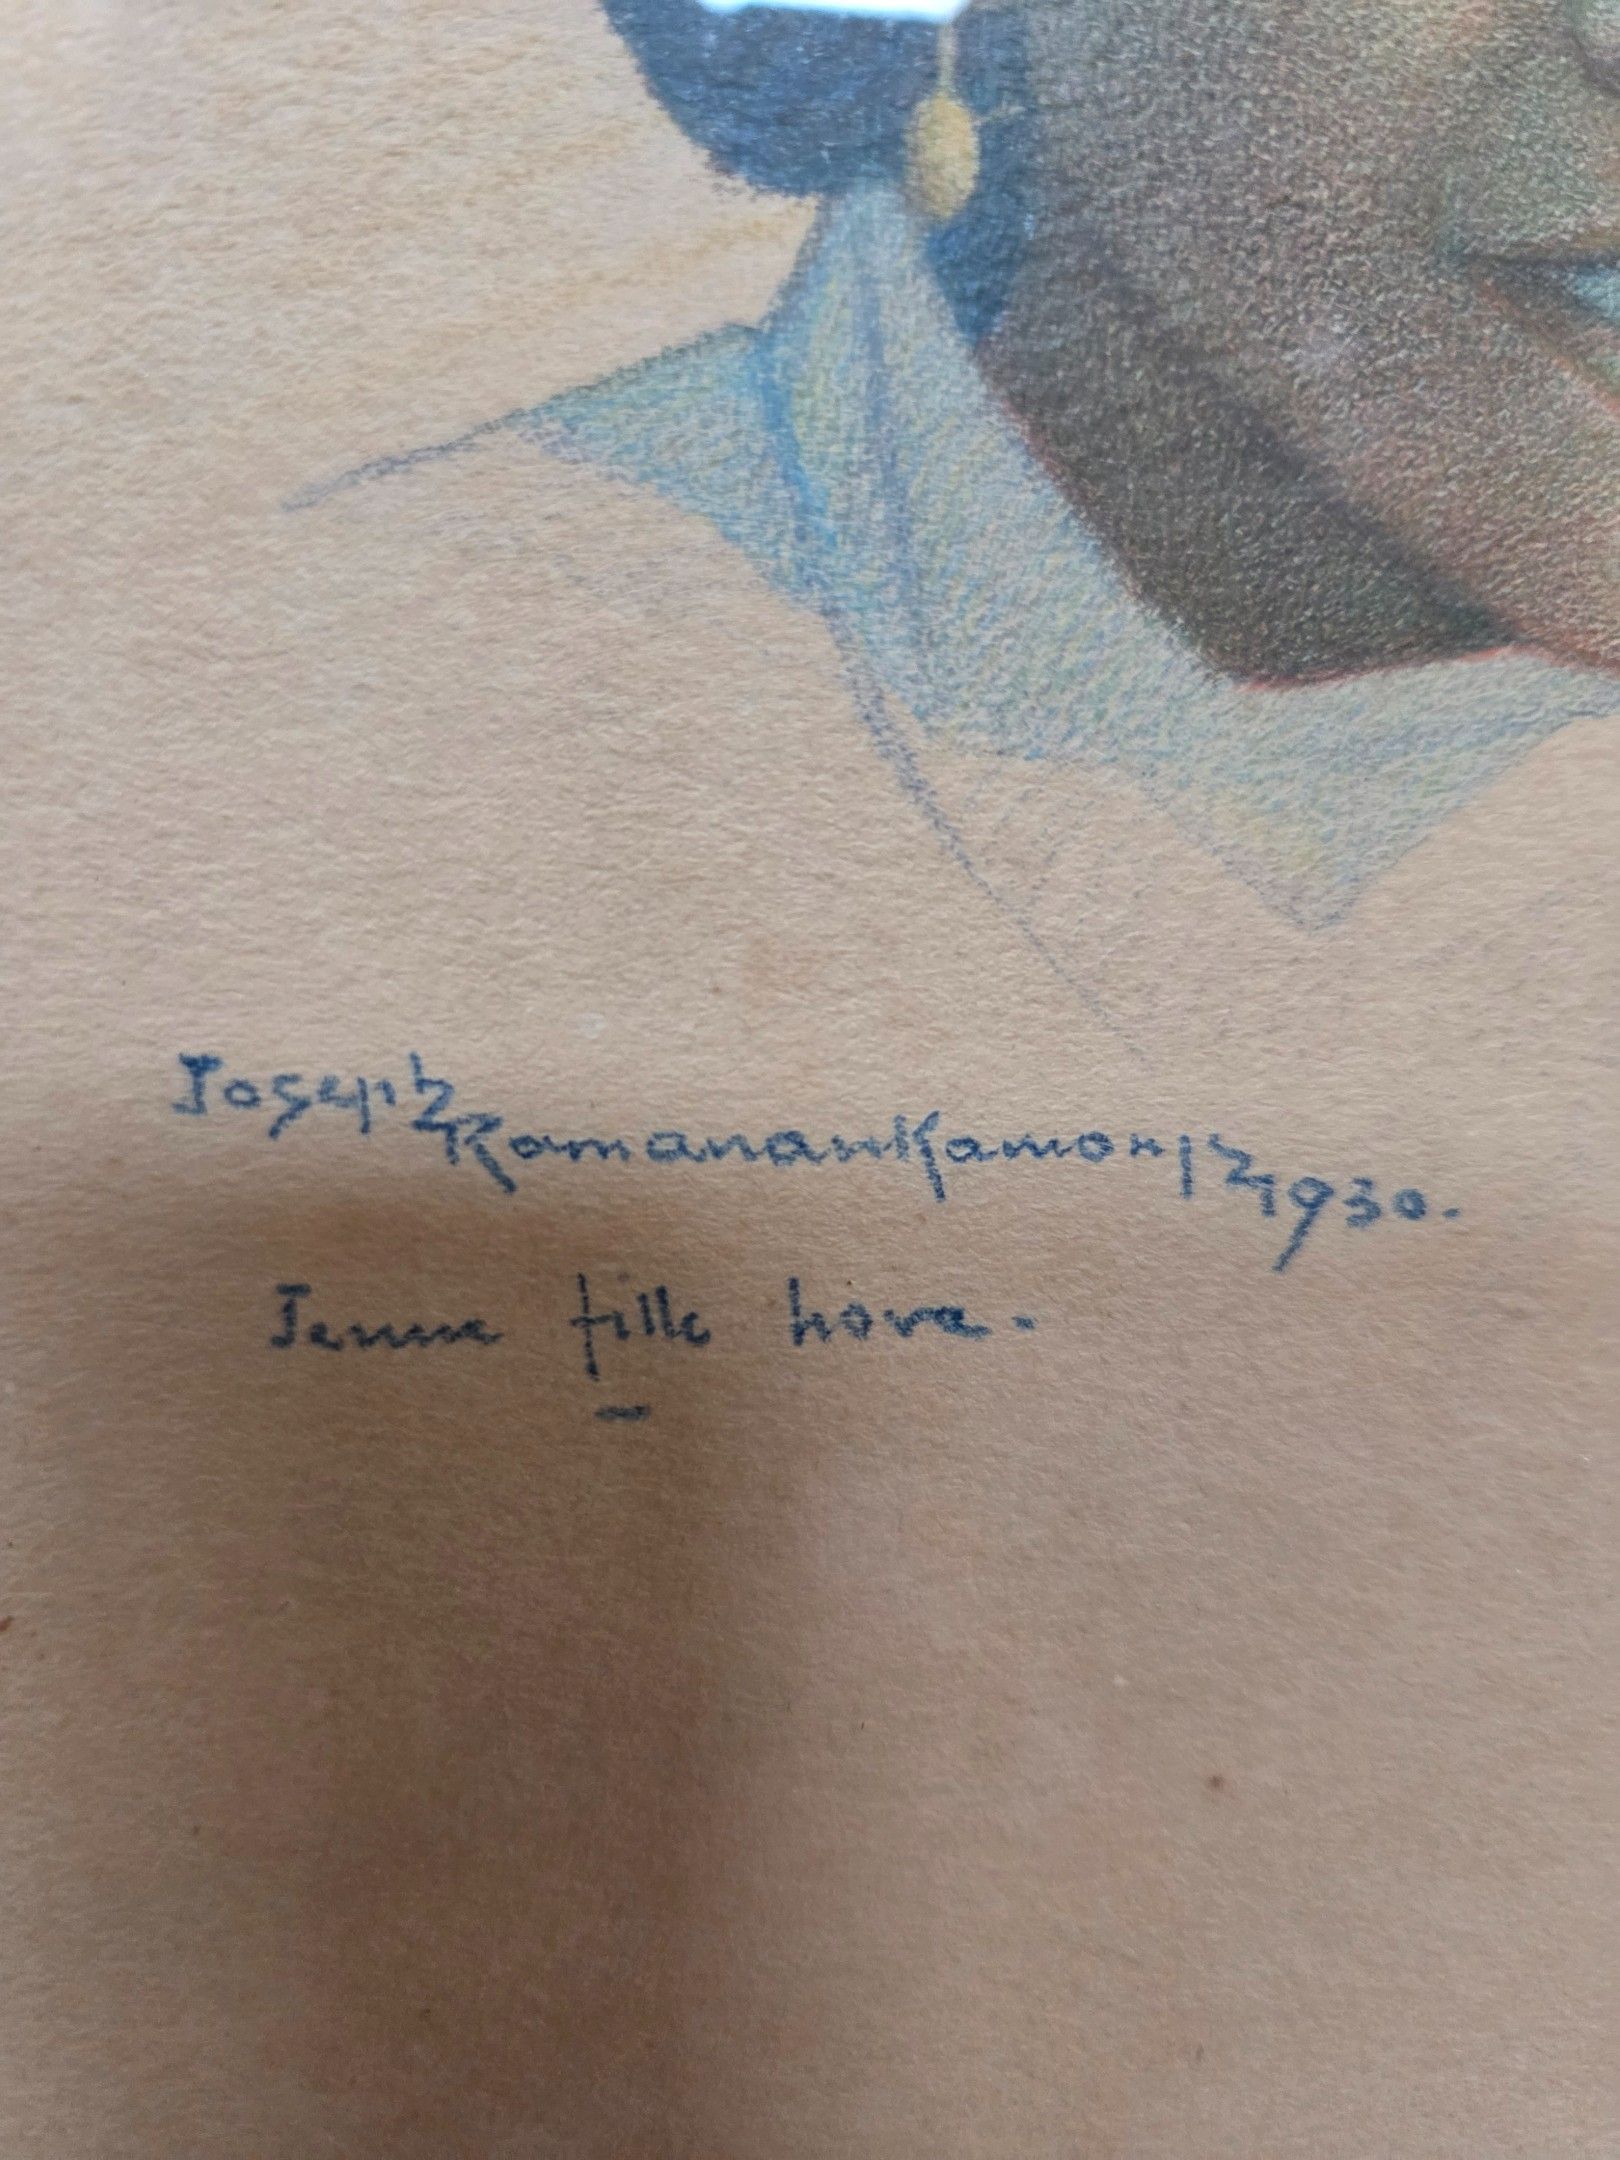 Joseph Ramanankamonjy 1930.
Jeune fille hova.